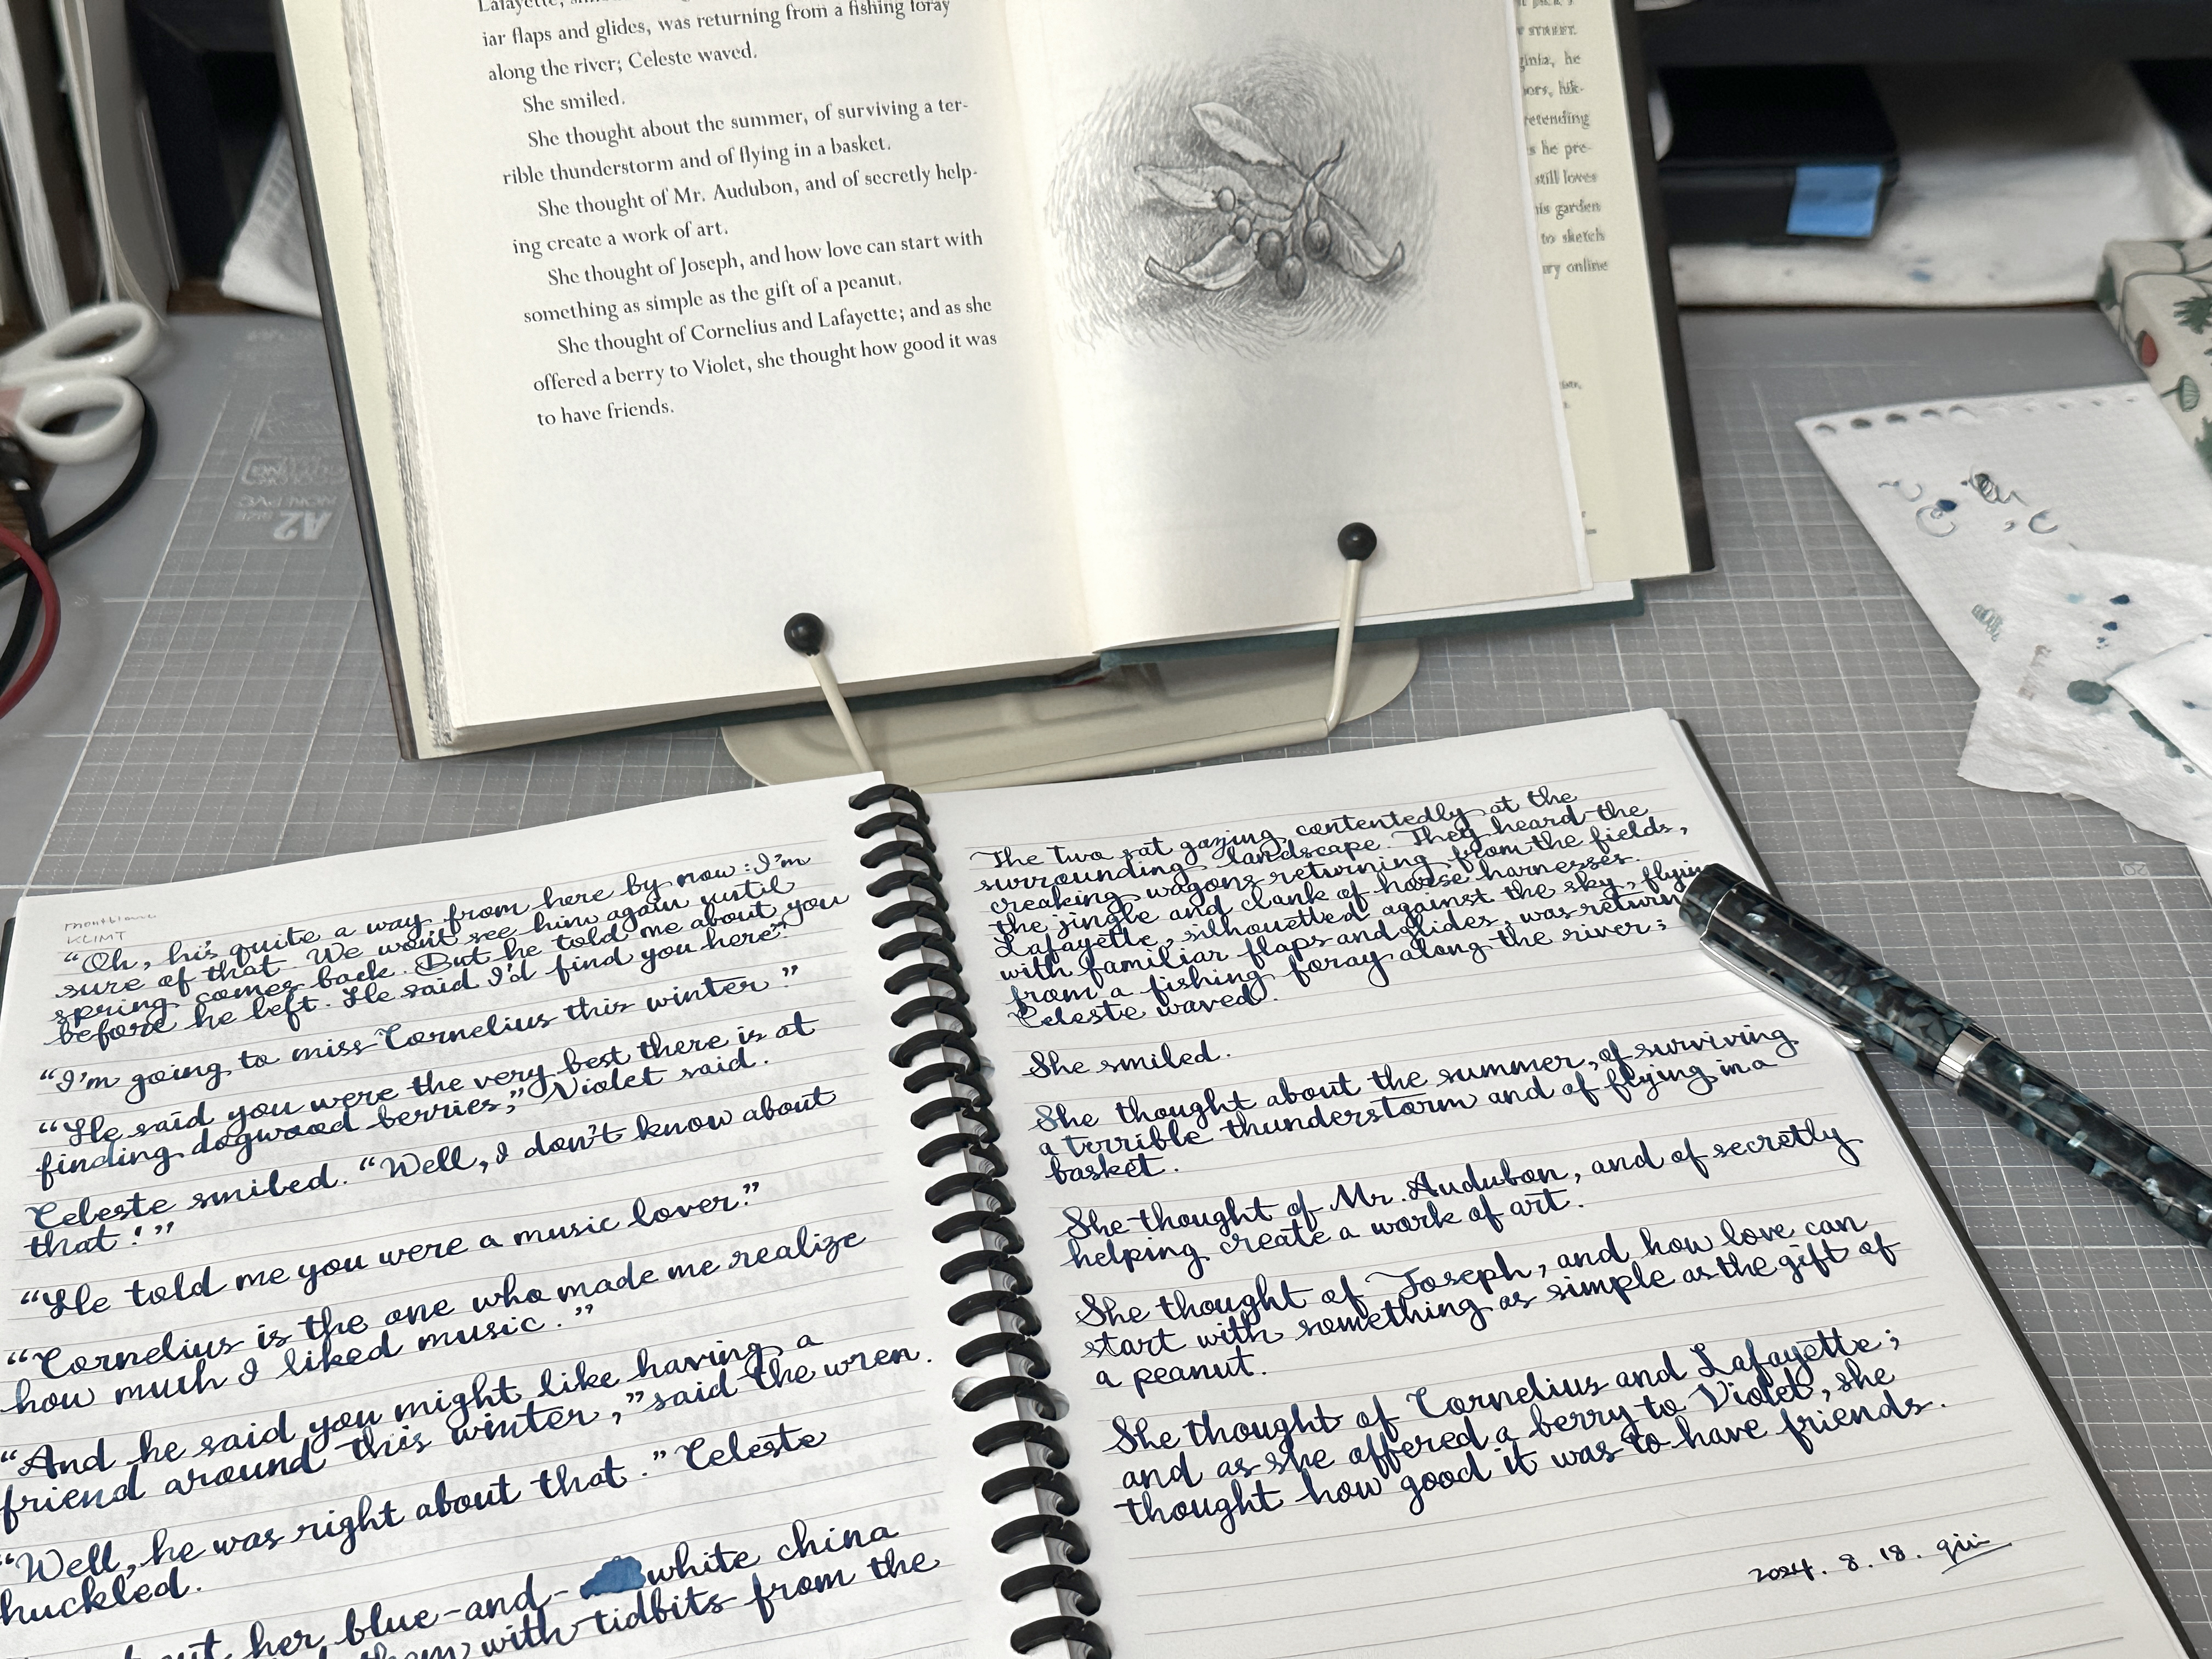 iar flaps and glides, was returning from a fishing foray
along the river; Celeste waved.
She smiled.
She thought about the summer, of surviving a ter-
rible thunderstorm and of flying in a basket.
She thought of Mr. Audubon, and of secretly help-
ing create a work of art.
She thought of Joseph, and how love can start with
something as simple as the gift of a peanut.
She thought of Cornelius and Lafayette; and as she
offered a berry to Violet, she thought how good it was
to have friends.
STREET.
he
hik-
he pre-
still loves
garden
to sketch
online
A2
montblanc
KLIMT
“Oh, his quite a way from here by now: I'm
sure of that. We won't see him again until
spring comes back. But he told me about you
before he left. He said I'd find you here.”
“I'm going to miss Cornelius this winter.”
“He said you were the very best there is at
finding dogwood berries,” Violet said.
Celeste smiled. “Well, I don't know about
that!”
“He told me you were a music lover.”
“Cornelius is the one who made me realize
how much I liked music.”
“And he said you might like having a
friend around this winter,” said the wren.
“Well, he was right about that.” Celeste
huckled.
her blue-and- white china
them with tidbits from the
The two sat gazing contentedly at the
surrounding landscape. They heard the
creaking wagons returning from the fields,
the jingle and clank of horse harnesses.
Lafayette, silhouetted against the sky, flying
with familiar flaps and glides, was return
from a fishing foray along the river;
Celeste waved.
She smiled.
She thought about the summer, of surviving
a terrible thunderstorm and of flying in a
basket.
She thought of Mr. Audubon, and of secretly
helping create a work of art.
She thought of Joseph, and how love can
start with something as simple as the gift of
a peanut.
She thought of Cornelius and Lafayette;
and as she offered a berry to Violet, she
thought how good it was to have friends.
2024. 8. 18.